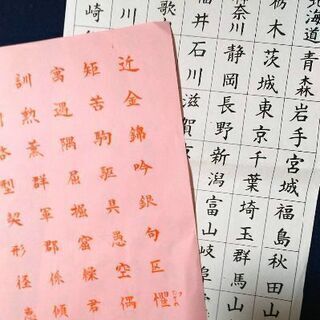 北海道青森岩手宮城福島秋田山
栃木茨城東京千葉埼玉群馬山
神奈川静岡長野新潟富山岐阜
福井石川滋賀
歌
川
崎
近金錦吟銀句区
矩苦駒駆具愚空偶
寓遇隅屈掘窟繰君
訓勲薫群軍郡係傾
型契形径